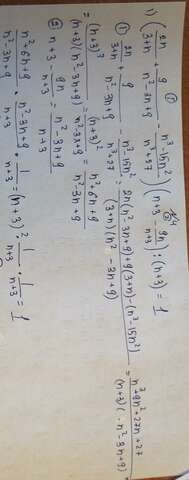 1) (2n/(3+n) + 9/(n²-3n+9) - (n³-15n²)/(n³+27)) (n+3 - 9n/(n+3)) : (n+3) = 1
① 2n/(3+n) + 9/(n²-3n+9) - (n³-15n²)/(n³+27) = (2n(n²-3n+9)+9(3+n)-(n³-15n²))/((3+n)(n²-3n+9)) = (n³+9n²+27n+27)/((n+3)(n²-3n+9)) =
= (n+3)³/((n+3)(n²-3n+9)) = (n+3)²/(n²-3n+9) = (n²+6n+9)/(n²-3n+9)
② n+3 - 9n/(n+3) = (n²-3n+9)/(n+3)
(n²+6n+9)/(n²-3n+9) · (n²-3n+9)/(n+3) · 1/(n+3) = (n+3)² · 1/(n+3) · 1/(n+3) = 1